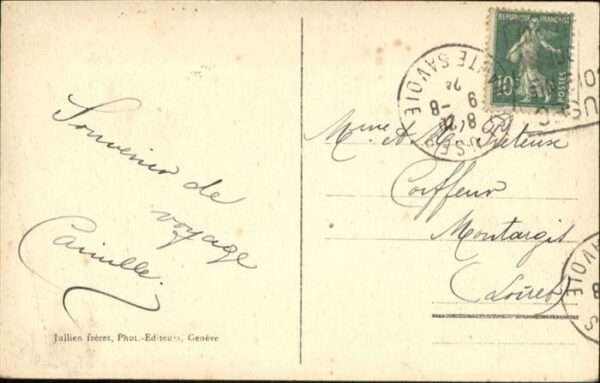 Souvenir de
voyage
Camille
Jullien frères, Phot.-Editeurs, Genève
REPUBLIQUE FRANÇAISE
10
POSTES
HTE SAVOIE
Mme et M.
Coiffeur
Montargis
(Loiret)